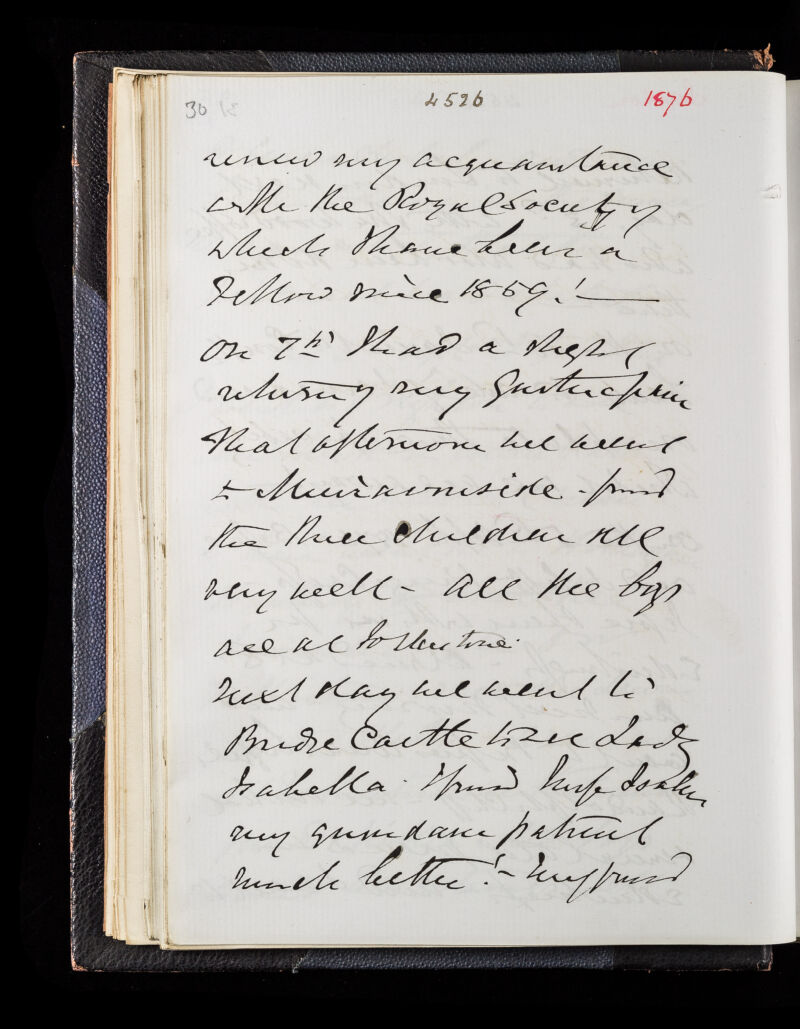 30
4526
1876
renew my acquaintance
with the Royal Society of
which I have been a
Fellow since 1869! —
On 7th I had a slight
return of my Gastric pain
That afternoon we went
to Muiravonside - found
the three children all
very well - all the boys
are at Folkestone.
Next day we went to
Castle to see Lady
Isabella. I found
my patient
much better! - my friend